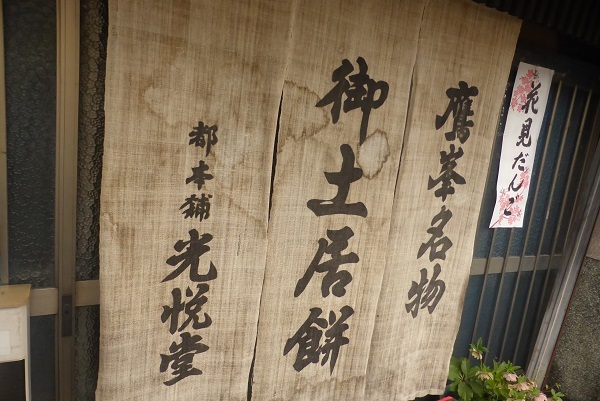 花見だんご
鷹峯名物
御土居餅
都本舗
光悦堂